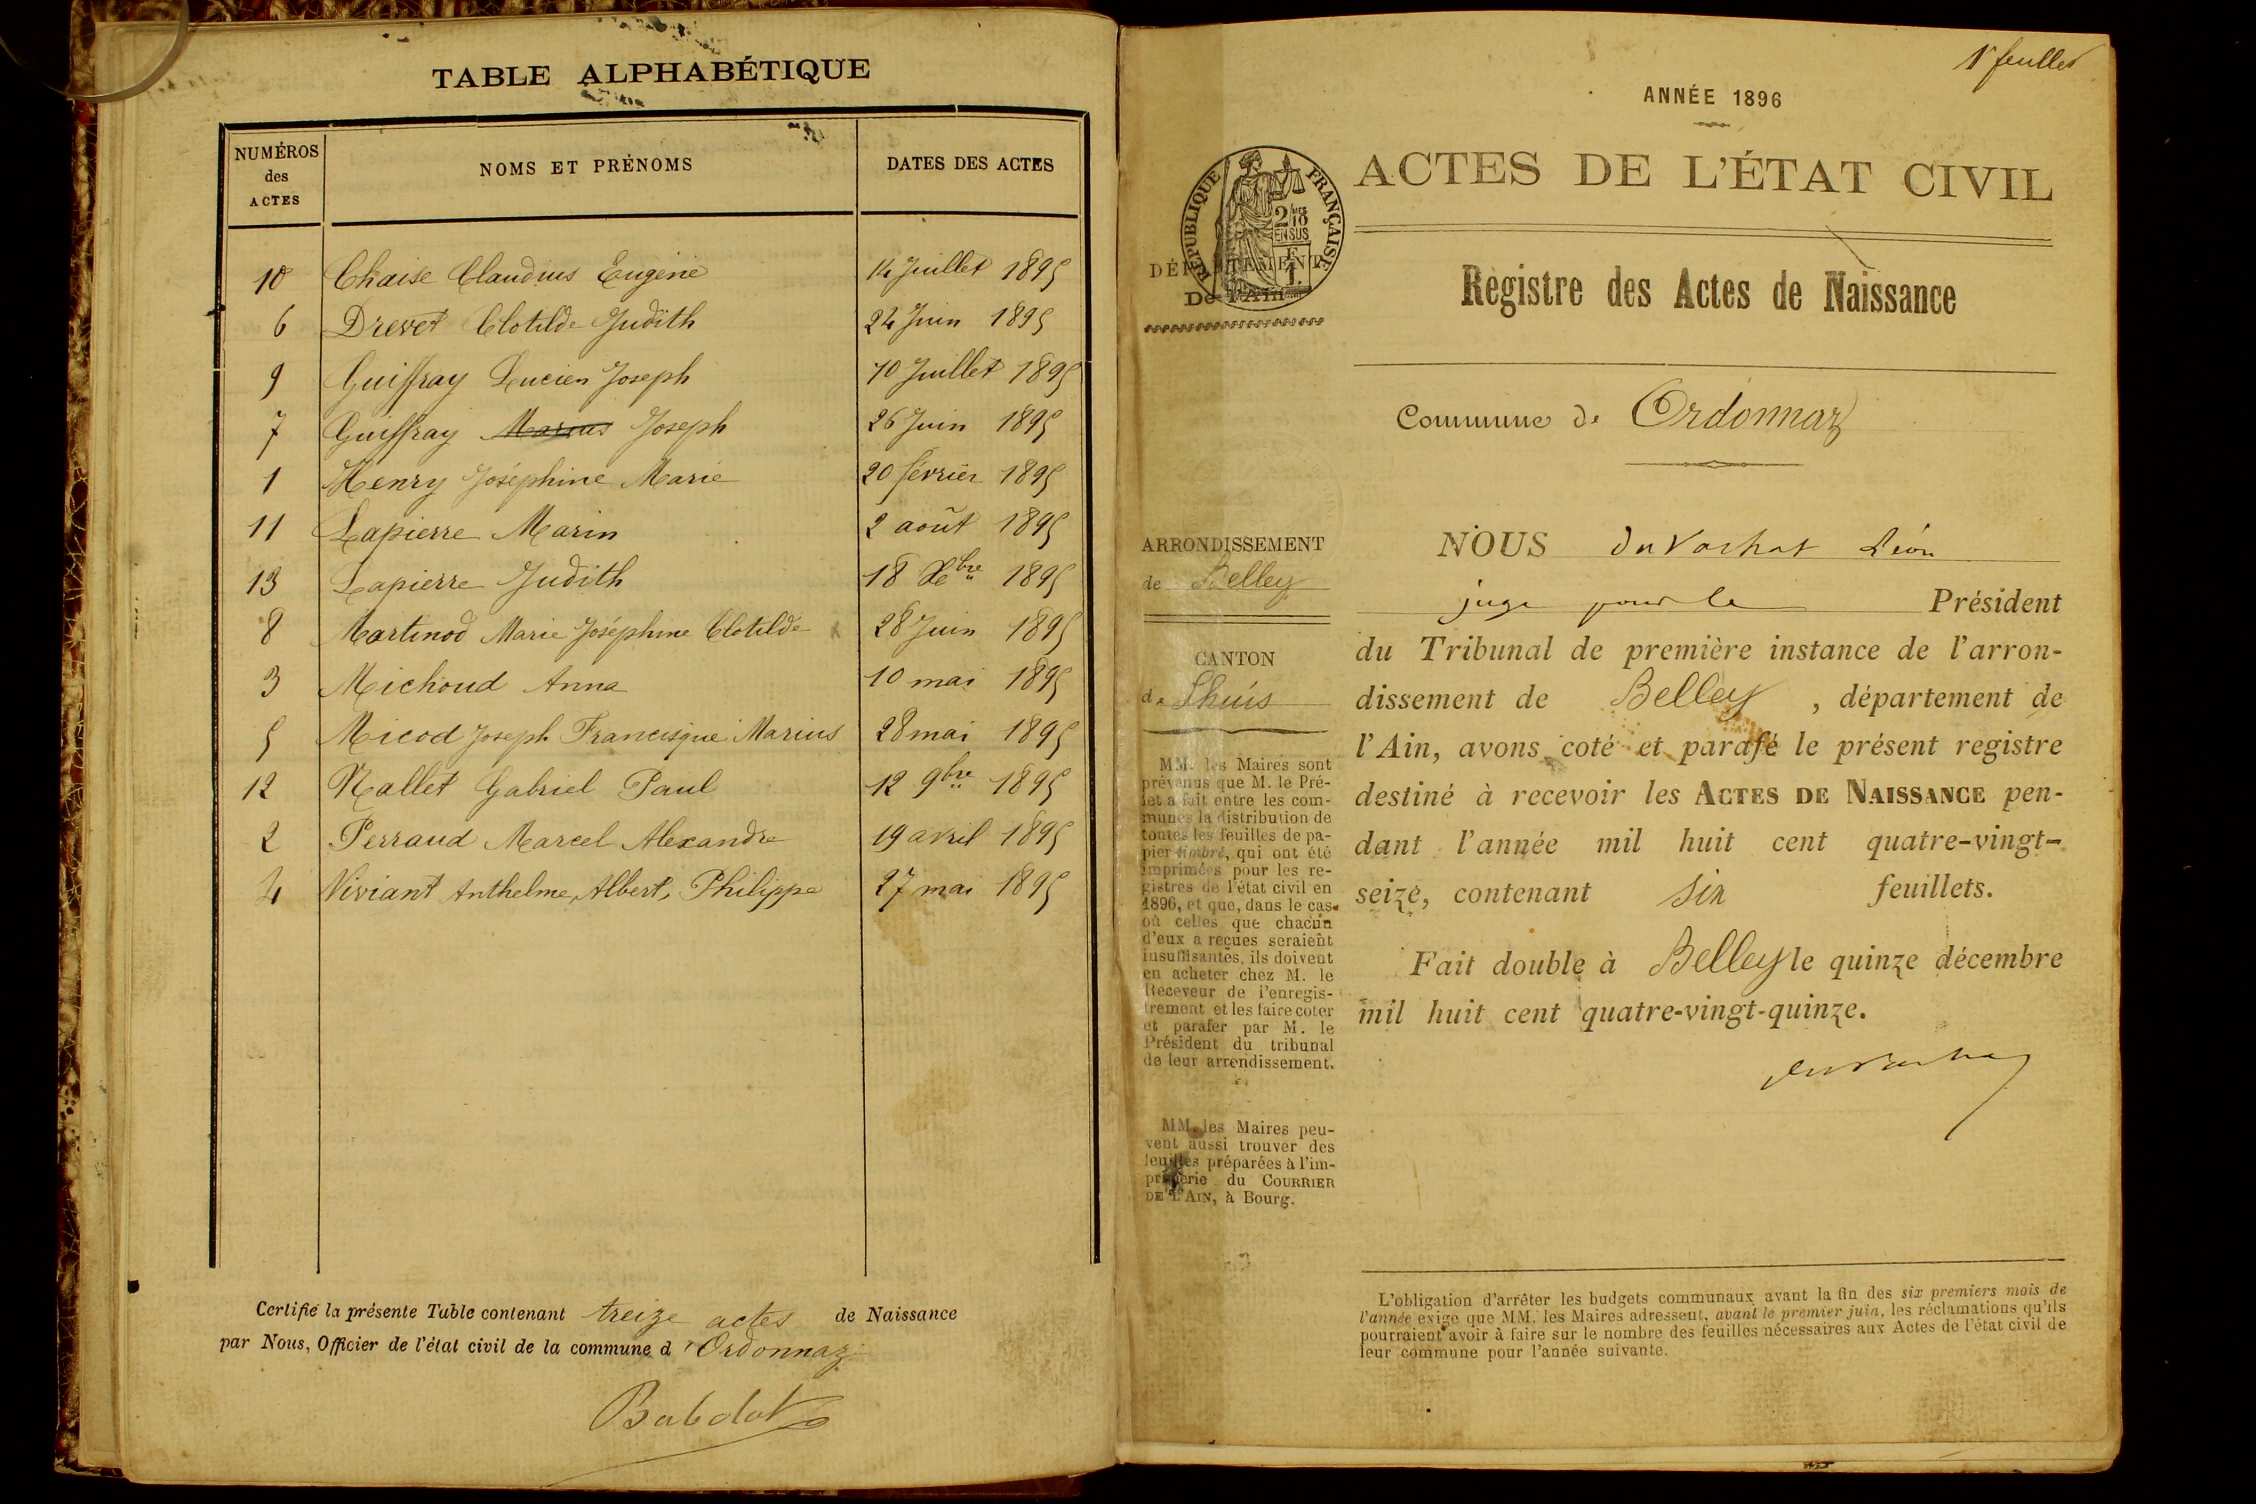 TABLE ALPHABÉTIQUE
NUMÉROS
des
ACTES
NOMS ET PRÉNOMS
DATES DES ACTES
10 Chaise Claudius Eugène 14 Juillet 1895
6 Drevet Clotilde Judith 24 Juin 1895
9 Guiffray Lucien Joseph 10 Juillet 1895
7 Guiffray Marius Joseph 26 Juin 1895
1 Henry Joséphine Marie 20 février 1895
11 Lapierre Marin 2 août 1895
13 Lapierre Judith 18 Xbre 1895
8 Martinod Marie Joséphine Clotilde 28 Juin 1895
3 Michoud Anna 10 mai 1895
5 Micod Joseph Francisque Marius 28 mai 1895
12 Nallet Gabriel Paul 12 9bre 1895
2 Perraud Marcel Alexandre 19 avril 1895
4 Viviant Anthelme, Albert, Philippe 27 mai 1895
Certifié la présente Table contenant treize actes de Naissance
par Nous, Officier de l'état civil de la commune d'Ordonnaz
Babolat
1r feuillet
ANNÉE 1896
ACTES DE L'ÉTAT CIVIL
RÉPUBLIQUE FRANÇAISE
DÉPARTEMENT
De l'Ain
Registre des Actes de Naissance
Commune de Ordonnaz
ARRONDISSEMENT
de Belley
CANTON
de Lhuis
MM. les Maires sont
prévenus que M. le Pré-
fet a fait entre les com-
munes la distribution de
toutes les feuilles de pa-
pier timbré, qui ont été
imprimées pour les re-
gistres de l'état civil en
1896, et que, dans le cas
où celles que chacun
d'eux a reçues seraient
insuffisantes, ils doivent
en acheter chez M. le
Receveur de l'enregis-
trement et les faire coter
et parafer par M. le
Président du tribunal
de leur arrendissement.
MM. les Maires peu-
vent aussi trouver des
feuilles préparées à l'im-
primerie du COURRIER
DE L'AIN, à Bourg.
NOUS du Vachat Léon
juge pour le Président
du Tribunal de première instance de l'arron-
dissement de Belley, département de
l'Ain, avons coté et parafé le présent registre
destiné à recevoir les ACTES DE NAISSANCE pen-
dant l'année mil huit cent quatre-vingt-
seize, contenant six feuillets.
Fait double à Belley le quinze décembre
mil huit cent quatre-vingt-quinze.
du Vachat
L'obligation d'arrêter les budgets communaux avant la fin des six premiers mois de
l'année exige que MM. les Maires adressent, avant le premier juin, les réclamations qu'ils
pourraient avoir à faire sur le nombre des feuilles nécessaires aux Actes de l'état civil de
leur commune pour l'année suivante.